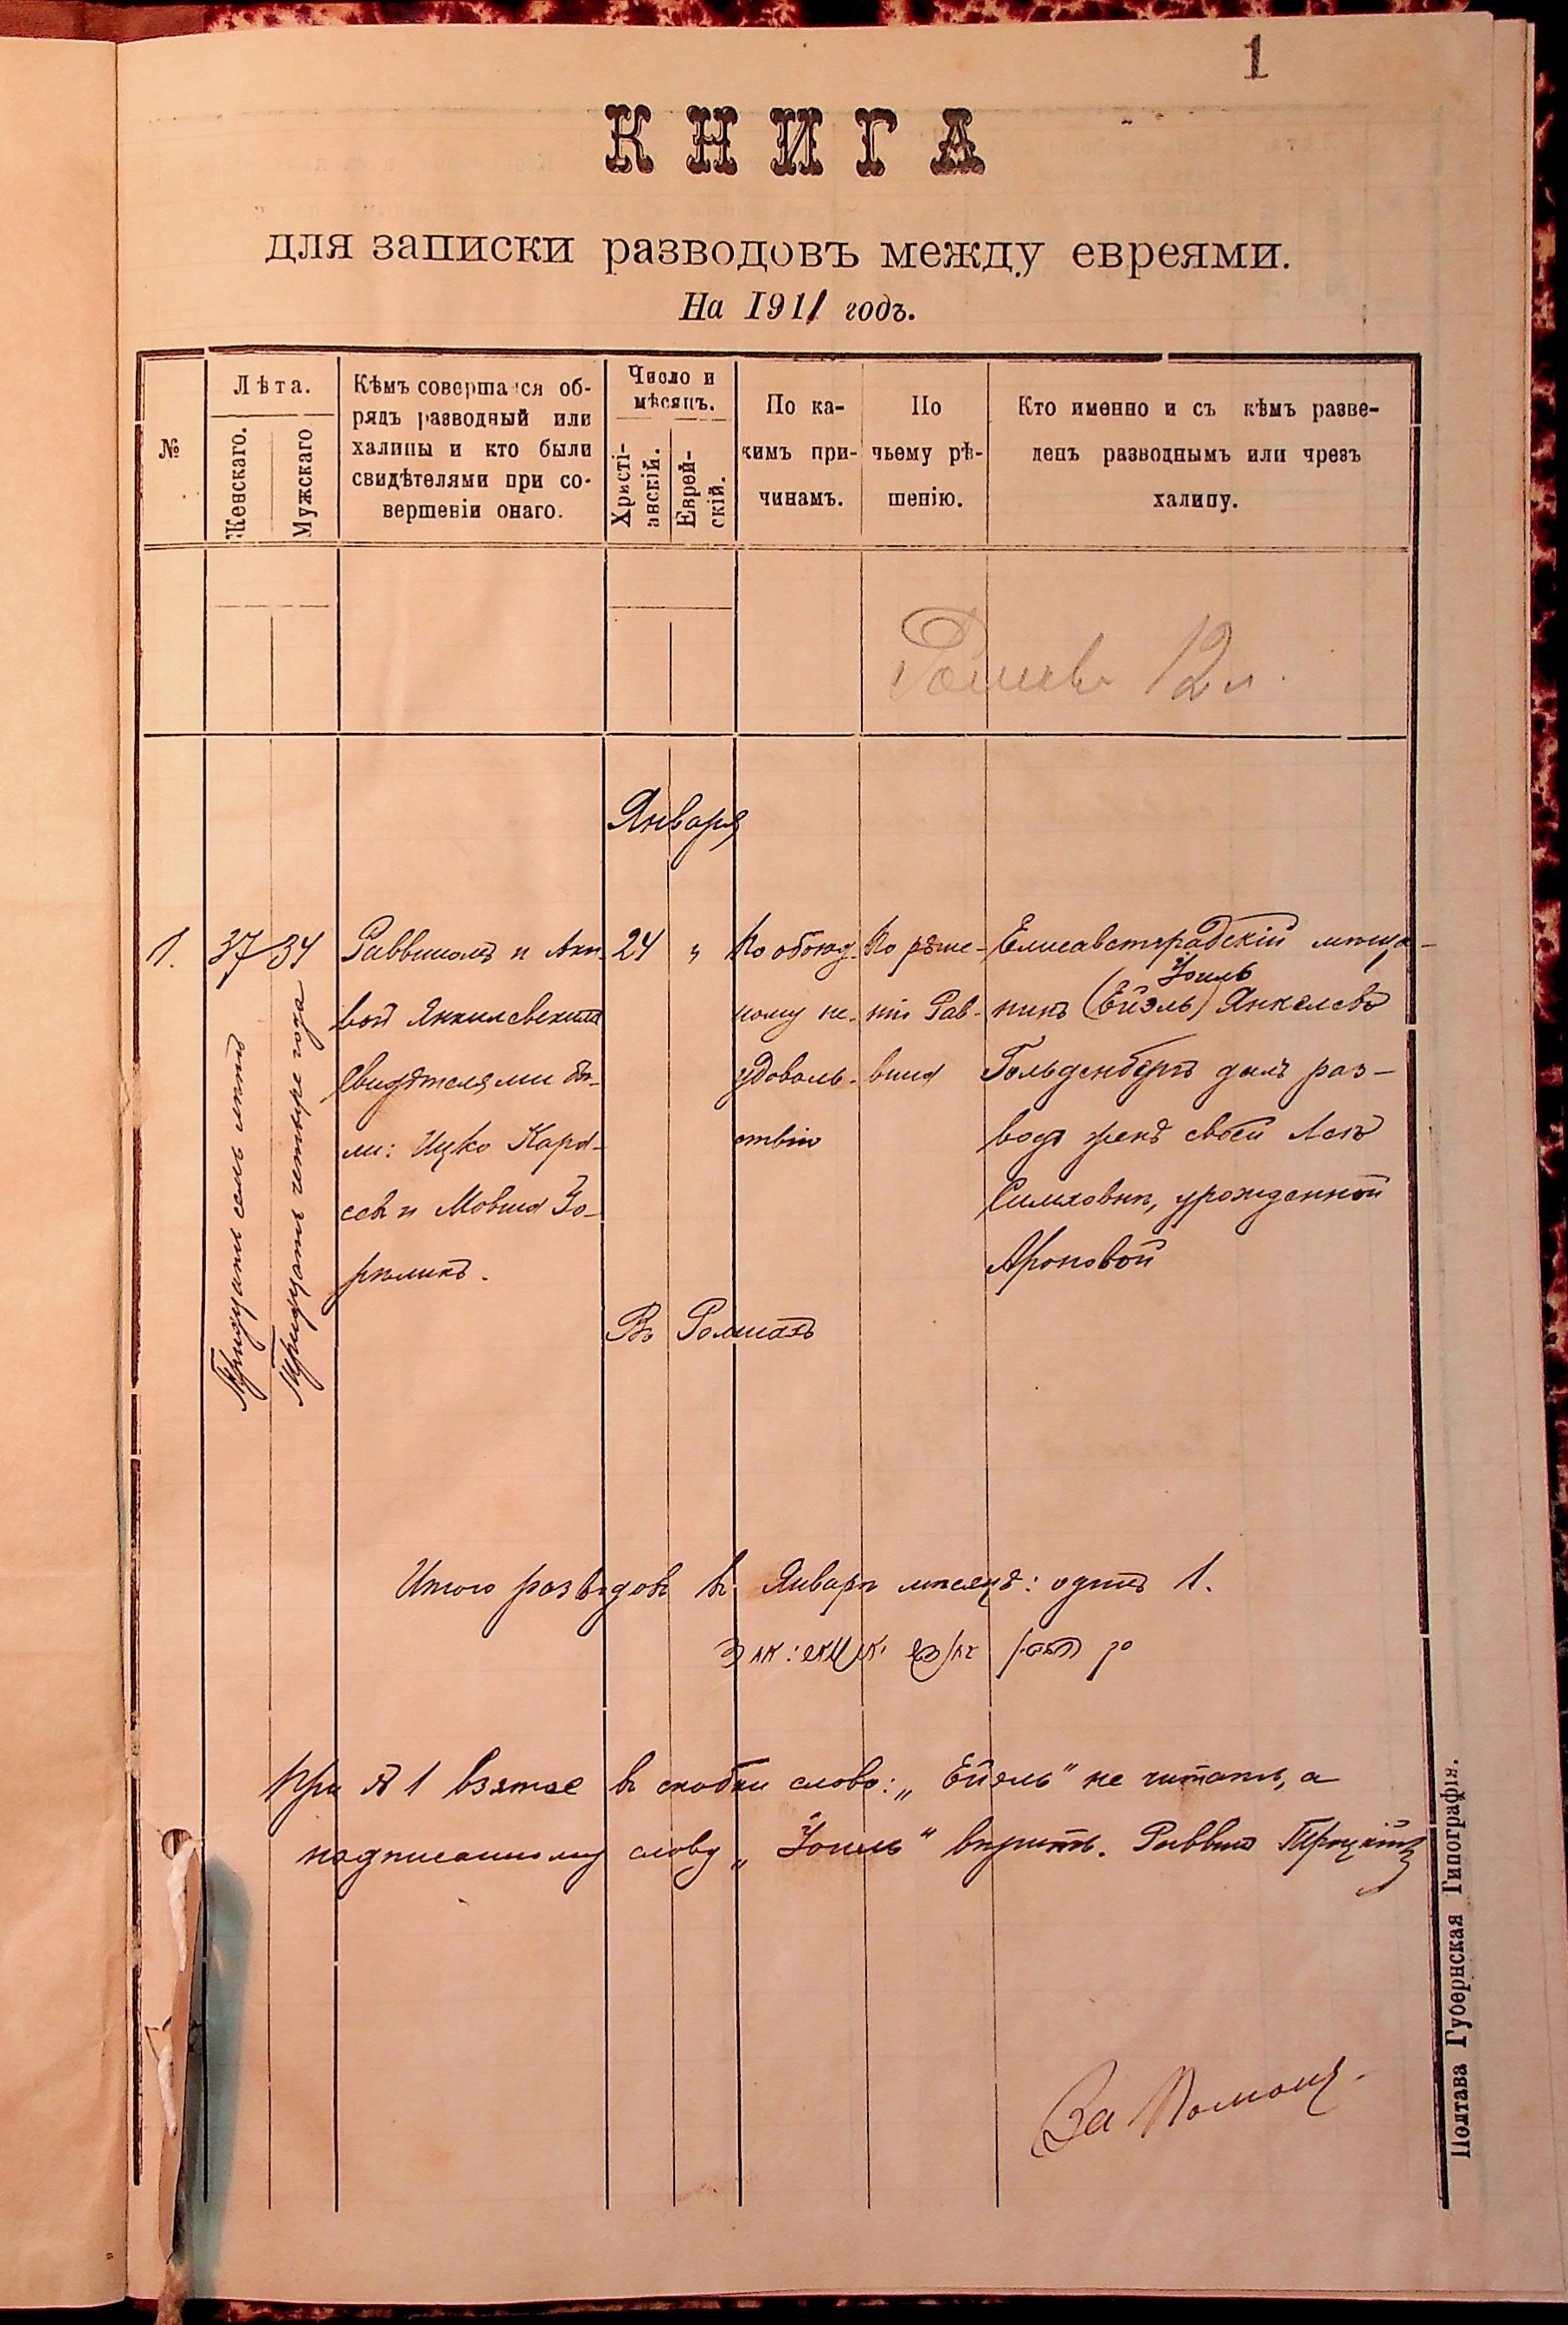 1
КНИГА
для записки разводовъ между евреями.
На 1911 годъ.
№
Лѣта.
Женскаго.
Мужскаго
Кѣмъ совершался об-
рядъ разводный или
халицы и кто были
свидѣтелями при со-
вершеніи онаго.
Число и
мѣсяцъ.
Христі-
анскій.
Еврей-
скій.
По ка-
кимъ при-
чинамъ.
По
чьему рѣ-
шенію.
Кто именно и съ кѣмъ разве-
денъ разводнымъ или чрезъ
халицу.
12 л.
Января
1.
37
34
Тридцать семь лѣтъ
Тридцать четыре года
Раввиномъ и Аки-
вой Янкилевскимъ
свидѣтелями бы-
ли: Ицко Кара-
севъ и Мовша Зо-
24
"
По обоюд-
ному не-
удоволь-
ствію
По рѣше-
нію Рав-
вина
Елисаветградскій мѣща-
Іоиль
нинъ (Ейэль) Янкелевъ
Гольденбергъ далъ раз-
водъ женѣ своей Леѣ
Симховнѣ, урожденной
Ароновой
Въ Ромнахъ
Итого разводовъ въ Январѣ мѣсяцѣ: одинъ 1.
При № 1 взятое въ скобки слово: „Ейэль" не читать, а
надписанному слову „Іоиль" вѣрить. Раввинъ
За
Полтава Губернская Типографія.